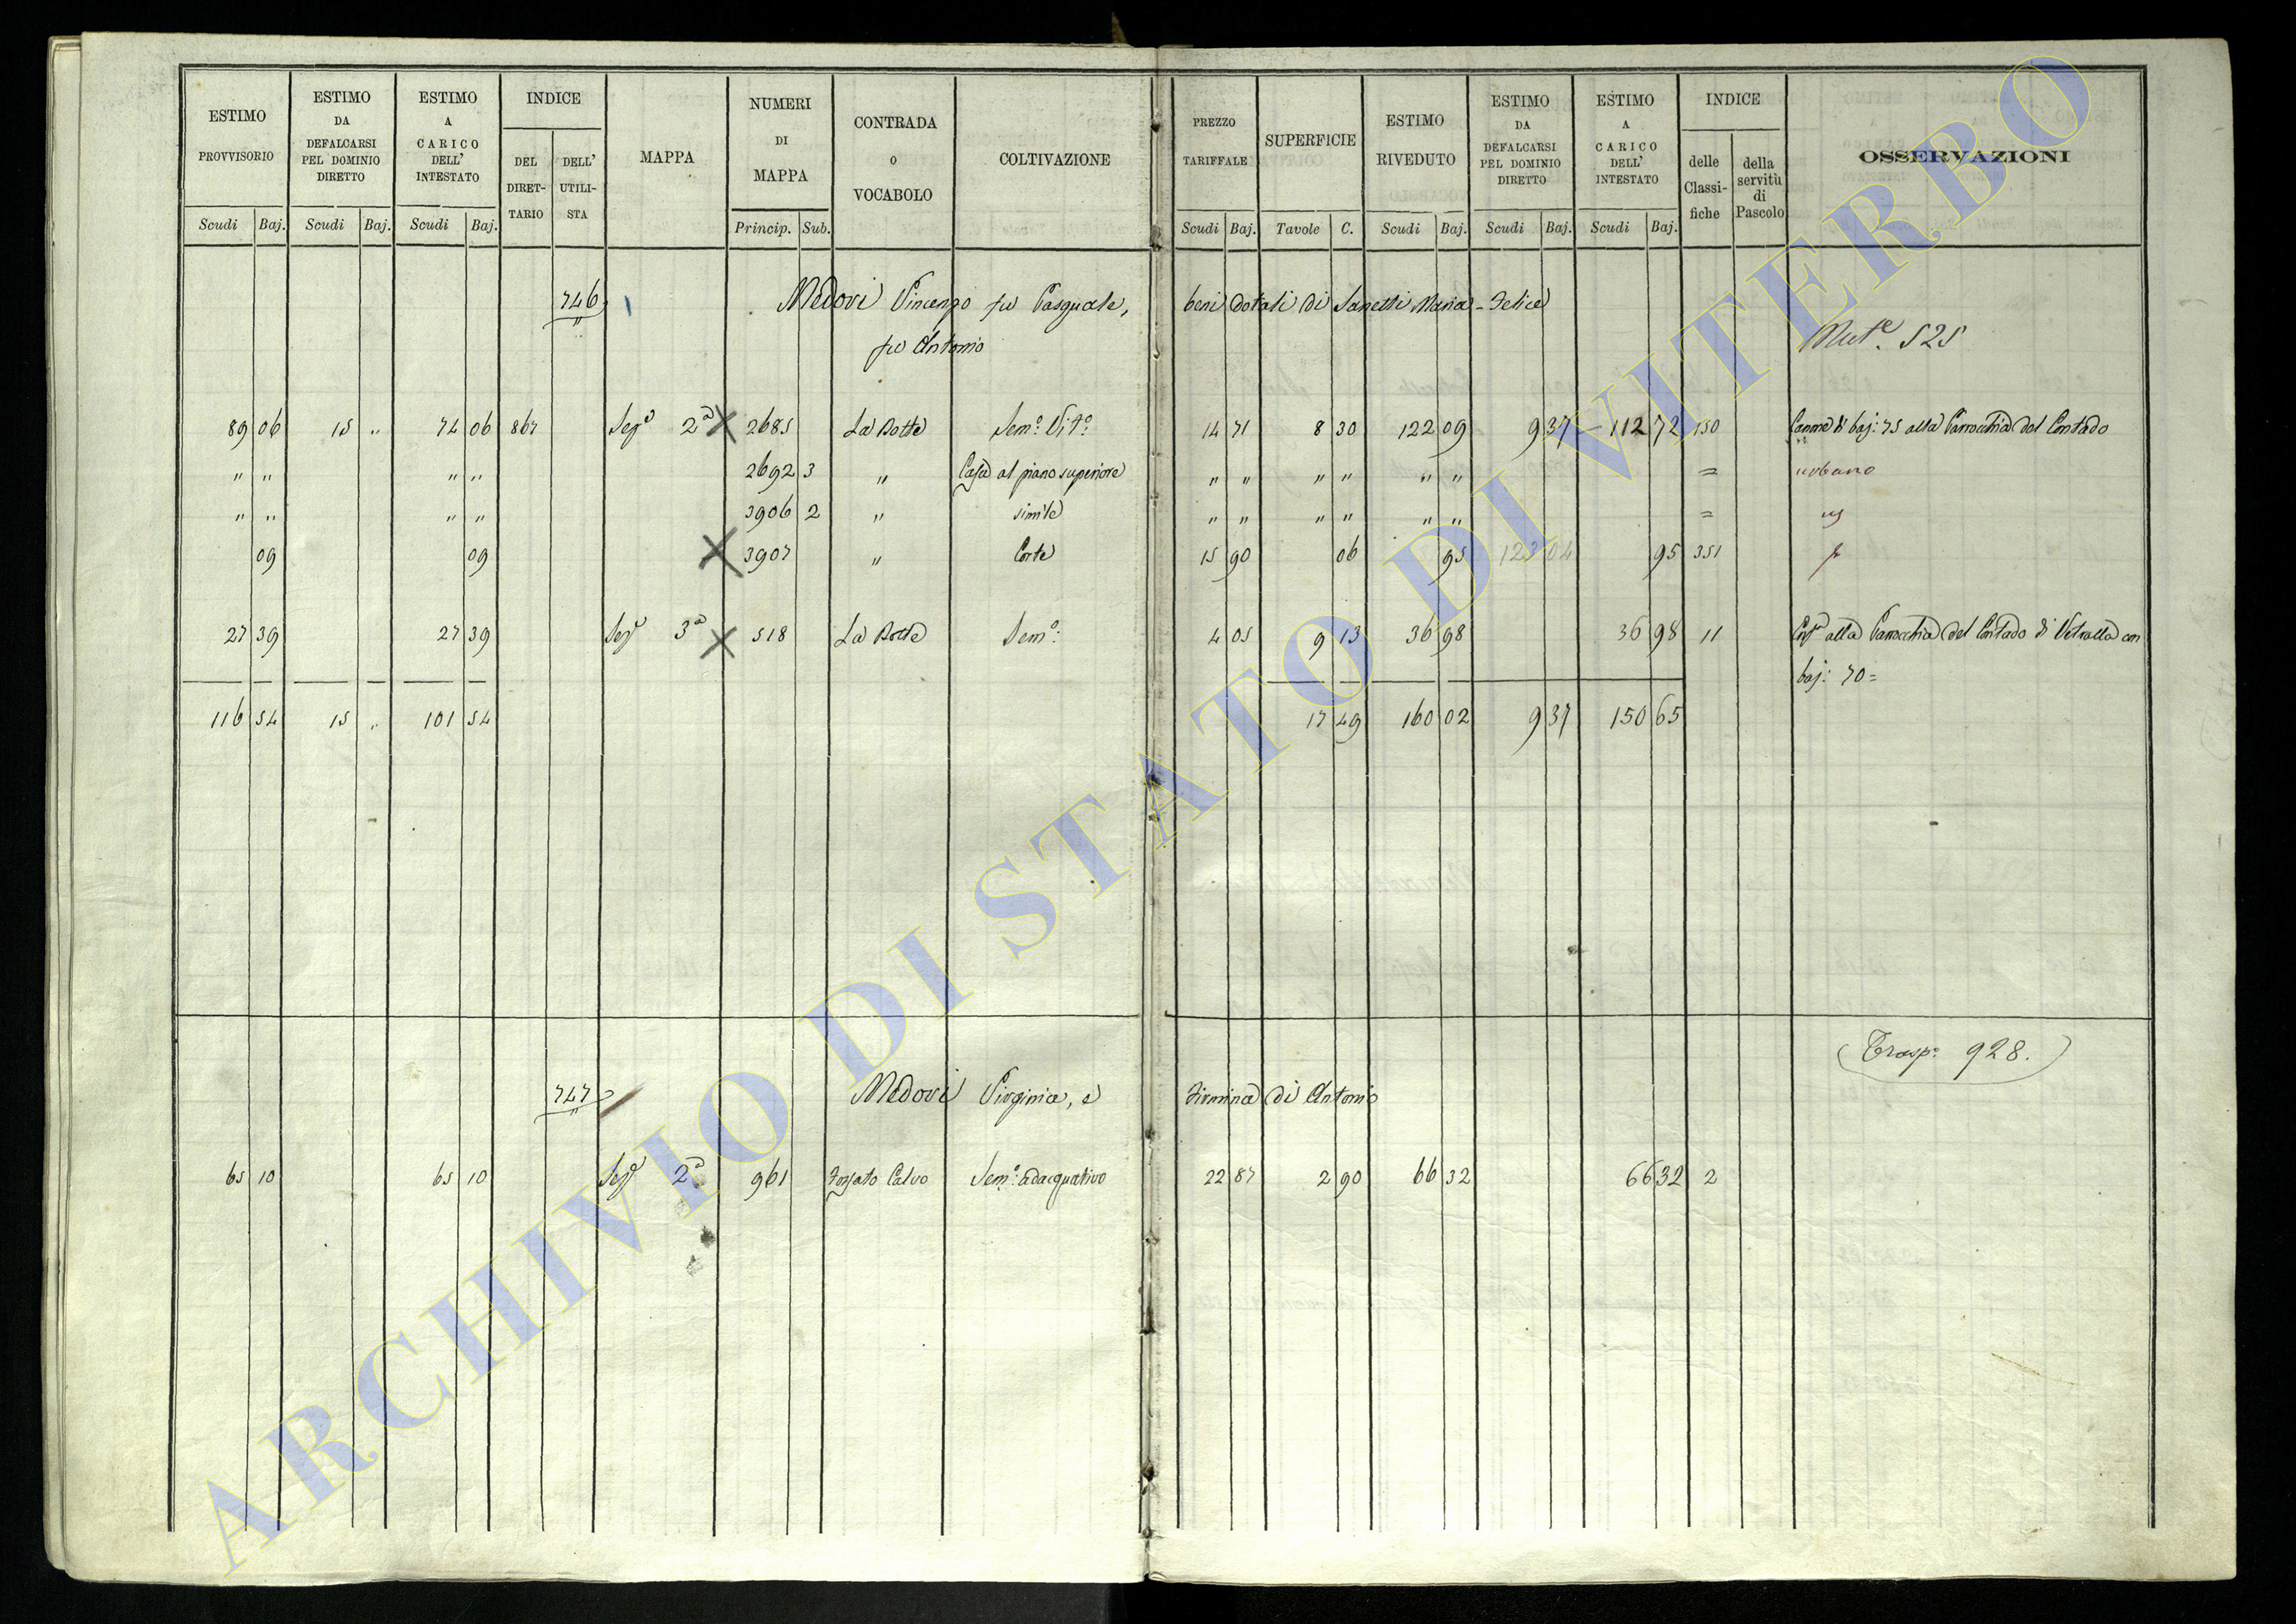 ESTIMO PROVVISORIO Scudi Baj. ESTIMO DA DEFALCARSI PEL DOMINIO DIRETTO Scudi Baj. ESTIMO A CARICO DELL' INTESTATO Scudi Baj. INDICE DEL DIRET-TARIO DELL' UTILI-STA MAPPA NUMERI DI MAPPA Princip. Sub. CONTRADA O VOCABOLO COLTIVAZIONE PREZZO TARIFFALE Scudi Baj. SUPERFICIE Tavole C. ESTIMO RIVEDUTO Scudi Baj. ESTIMO DA DEFALCARSI PEL DOMINIO DIRETTO Scudi Baj. ESTIMO A CARICO DELL' INTESTATO Scudi Baj. INDICE delle Classi-fiche della servitù di Pascolo OSSERVAZIONI
746 Medori Vincenzo fu Pasquale, beni dotali di Sanetti Maria-Felice
fu Antonio
Mut.e 525
89 06 15 " 74 06 867 Sez.e 2a 2685 La Botte Sem.o Vit.o 14 71 8 30 122 09 9 37 112 72 150 Canone di baj: 75 alla Parrocchia del Contado
" " " " 2692 3 " Casa al piano superiore " " " " " " = urbano
" " " " 3906 2 " simile " " " " " " =
09 09 3907 " Corte 15 90 06 95 123 04 95 351
27 39 27 39 Sez.e 3a 518 La Botte Sem.o: 4 05 9 13 36 98 36 98 11 alla Parrocchia del Contado di Vetralla con
baj: 70=
116 54 15 " 101 54 17 49 160 02 9 37 150 65
(Trasp: 928.)
747 Medori Virginia, e Firmina di Antonio
65 10 65 10 Sez.e 2a 961 Fossato Calvo Sem.o: adacquativo 22 87 2 90 66 32 66 32 2
ARCHIVIO DI STATO DI VITERBO